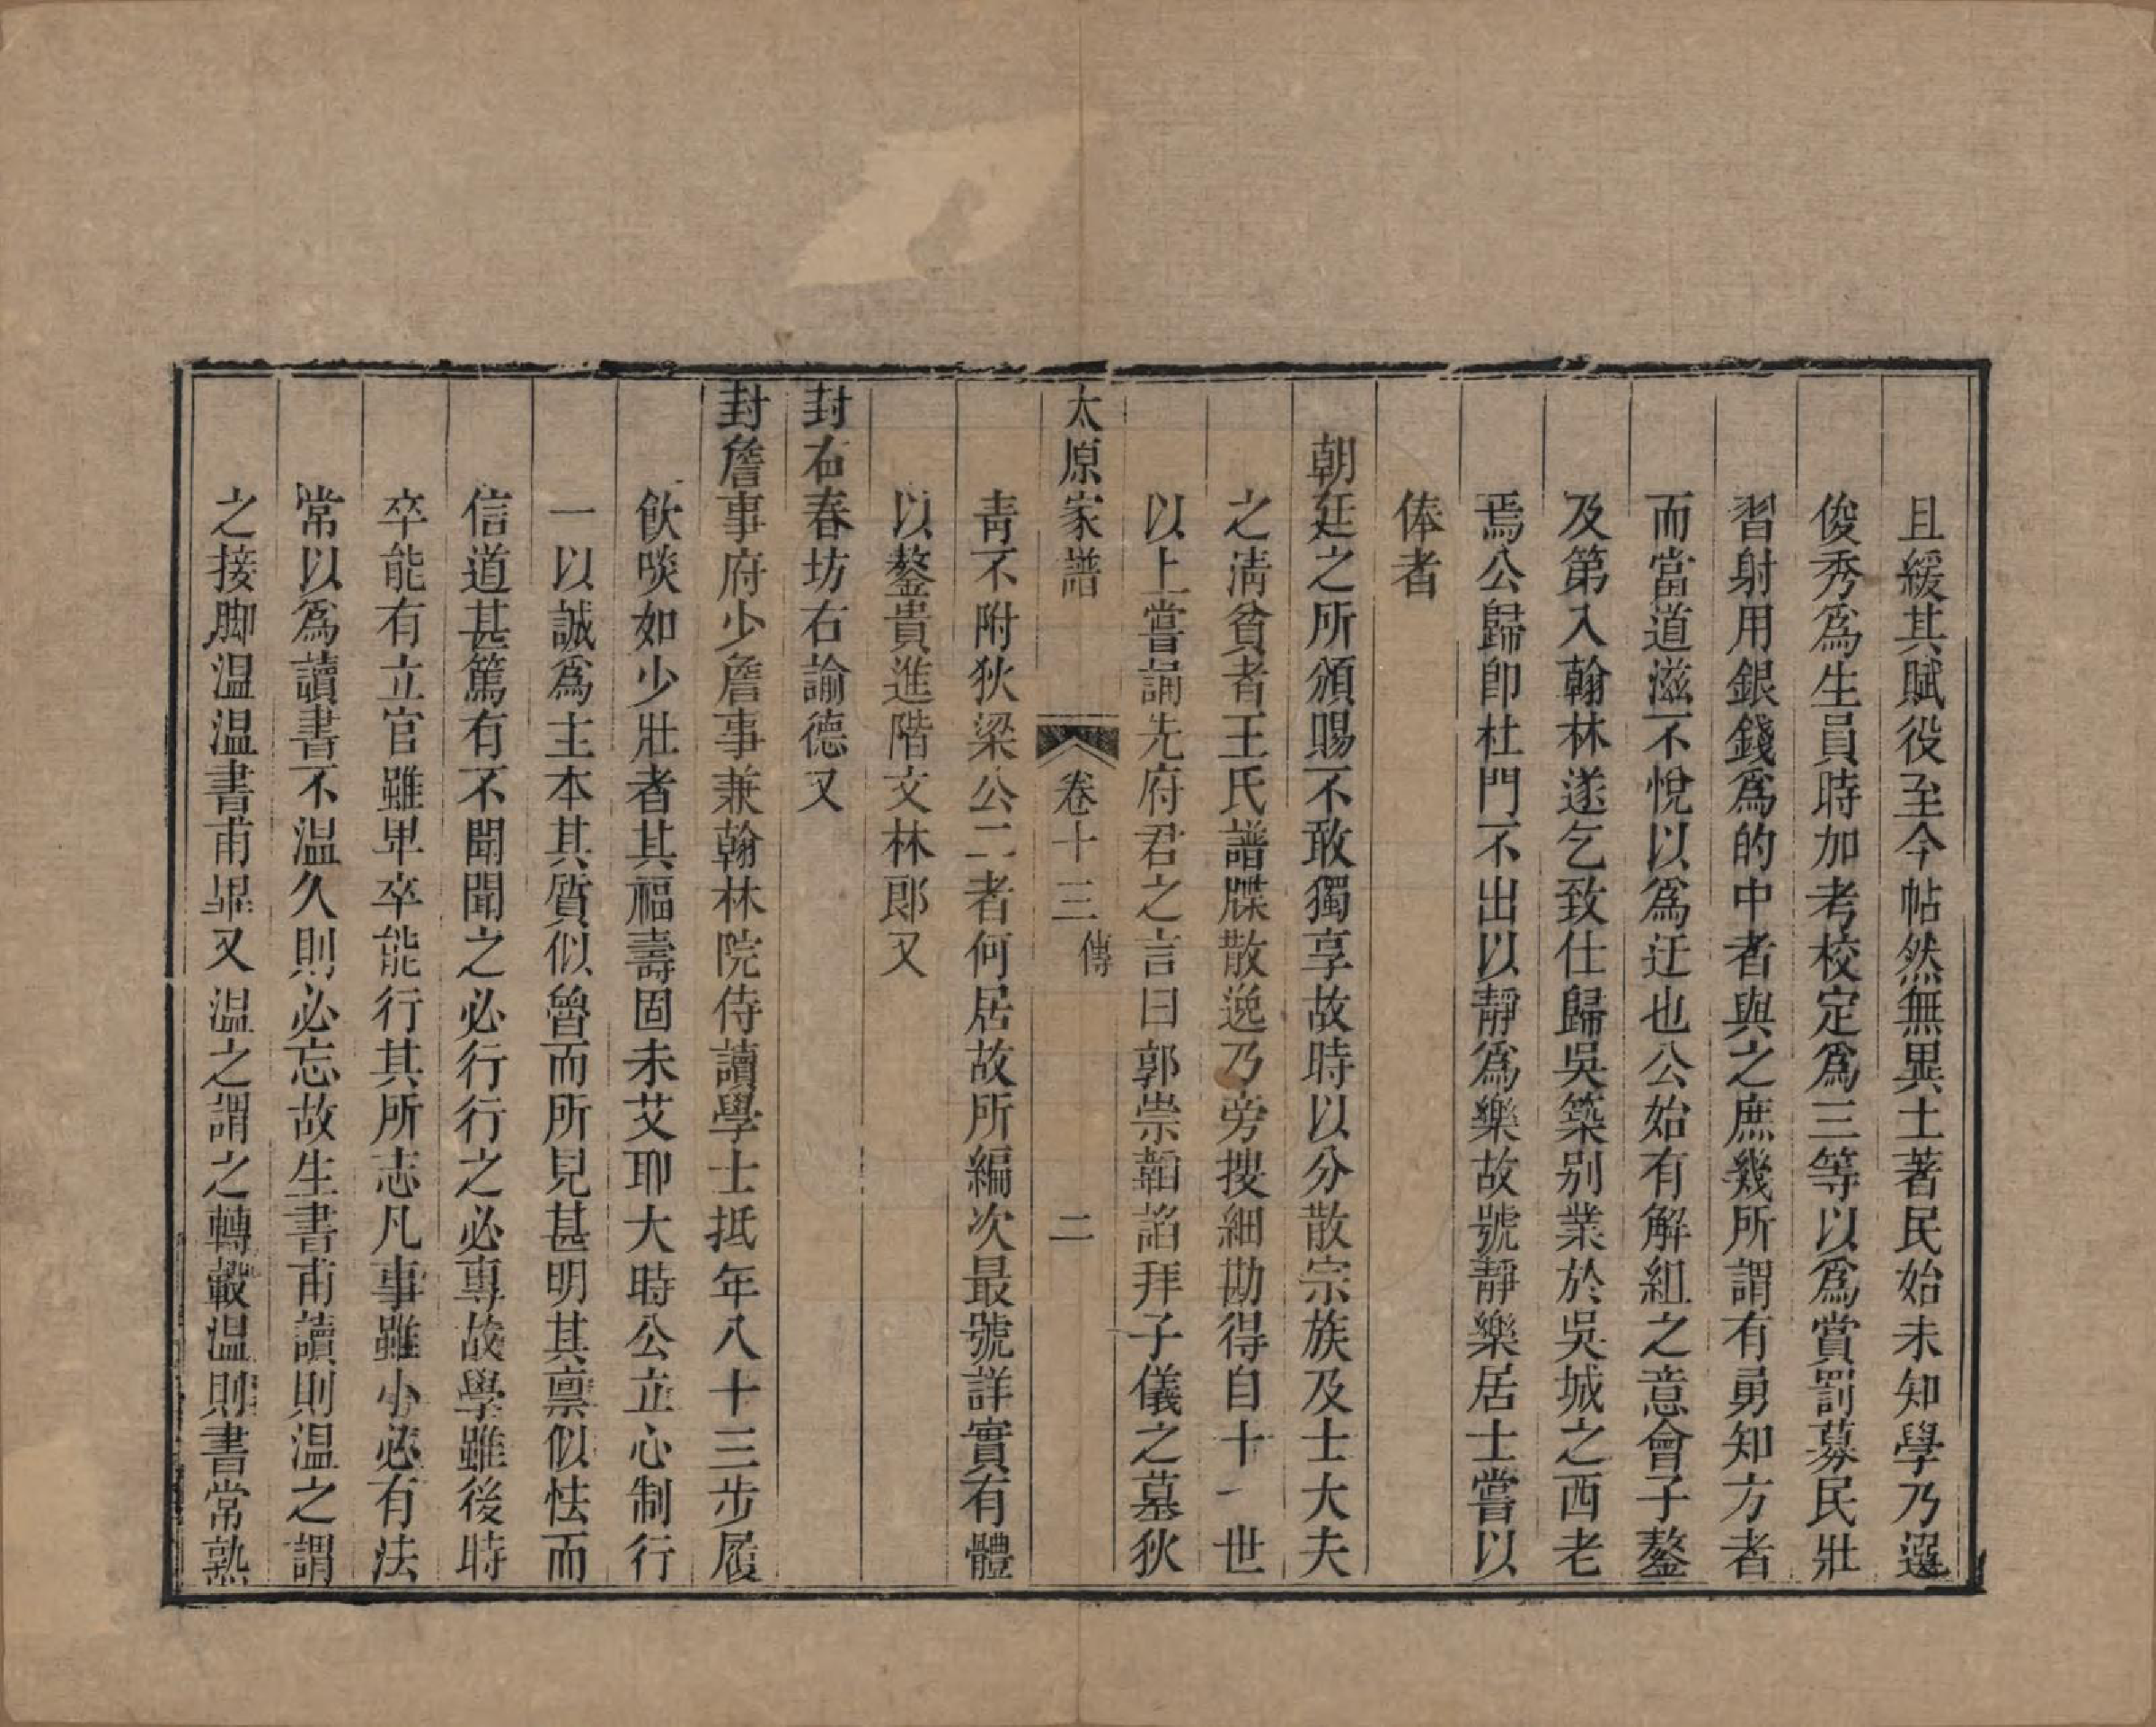 且緩其賦役至今帖然無異土著民始未知學乃選
俊秀爲生員時加考校定爲三等以爲賞罰募民壯
習射用銀錢爲的中者與之庶幾所謂有勇知方者
而當道滋不悅以爲迂也公始有解組之意會子鏊
及第入翰林遂乞致仕歸吳築别業於吳城之西老
焉公歸卽杜門不出以靜爲樂故號靜樂居士嘗以
俸者
朝廷之所頒賜不敢獨享故時以分散宗族及士大夫
之淸貧者王氏譜牒散逸乃旁搜細勘得自十一世
以上嘗誦先府君之言曰郭崇韜諂拜子儀之墓狄
太原家譜 卷十三 傳 二
靑不附狄梁公二者何居故所編次最號詳實有體
以鏊貴進階文林郎又
封右春坊右諭德又
封詹事府少詹事兼翰林院侍讀學士抵年八十三步履
飲啖如少壯者其福壽固未艾耶大時公立心制行
一以誠爲主本其質似魯而所見甚明其禀似怯而
信道甚篤有不聞聞之必行行之必專故學雖後時
卒能有立官雖卑卒能行其所志凡事雖小必有法
常以爲讀書不溫久則必忘故生書甫讀則溫之謂
之接脚溫溫書甫畢又溫之謂之轉轂溫則書常熟